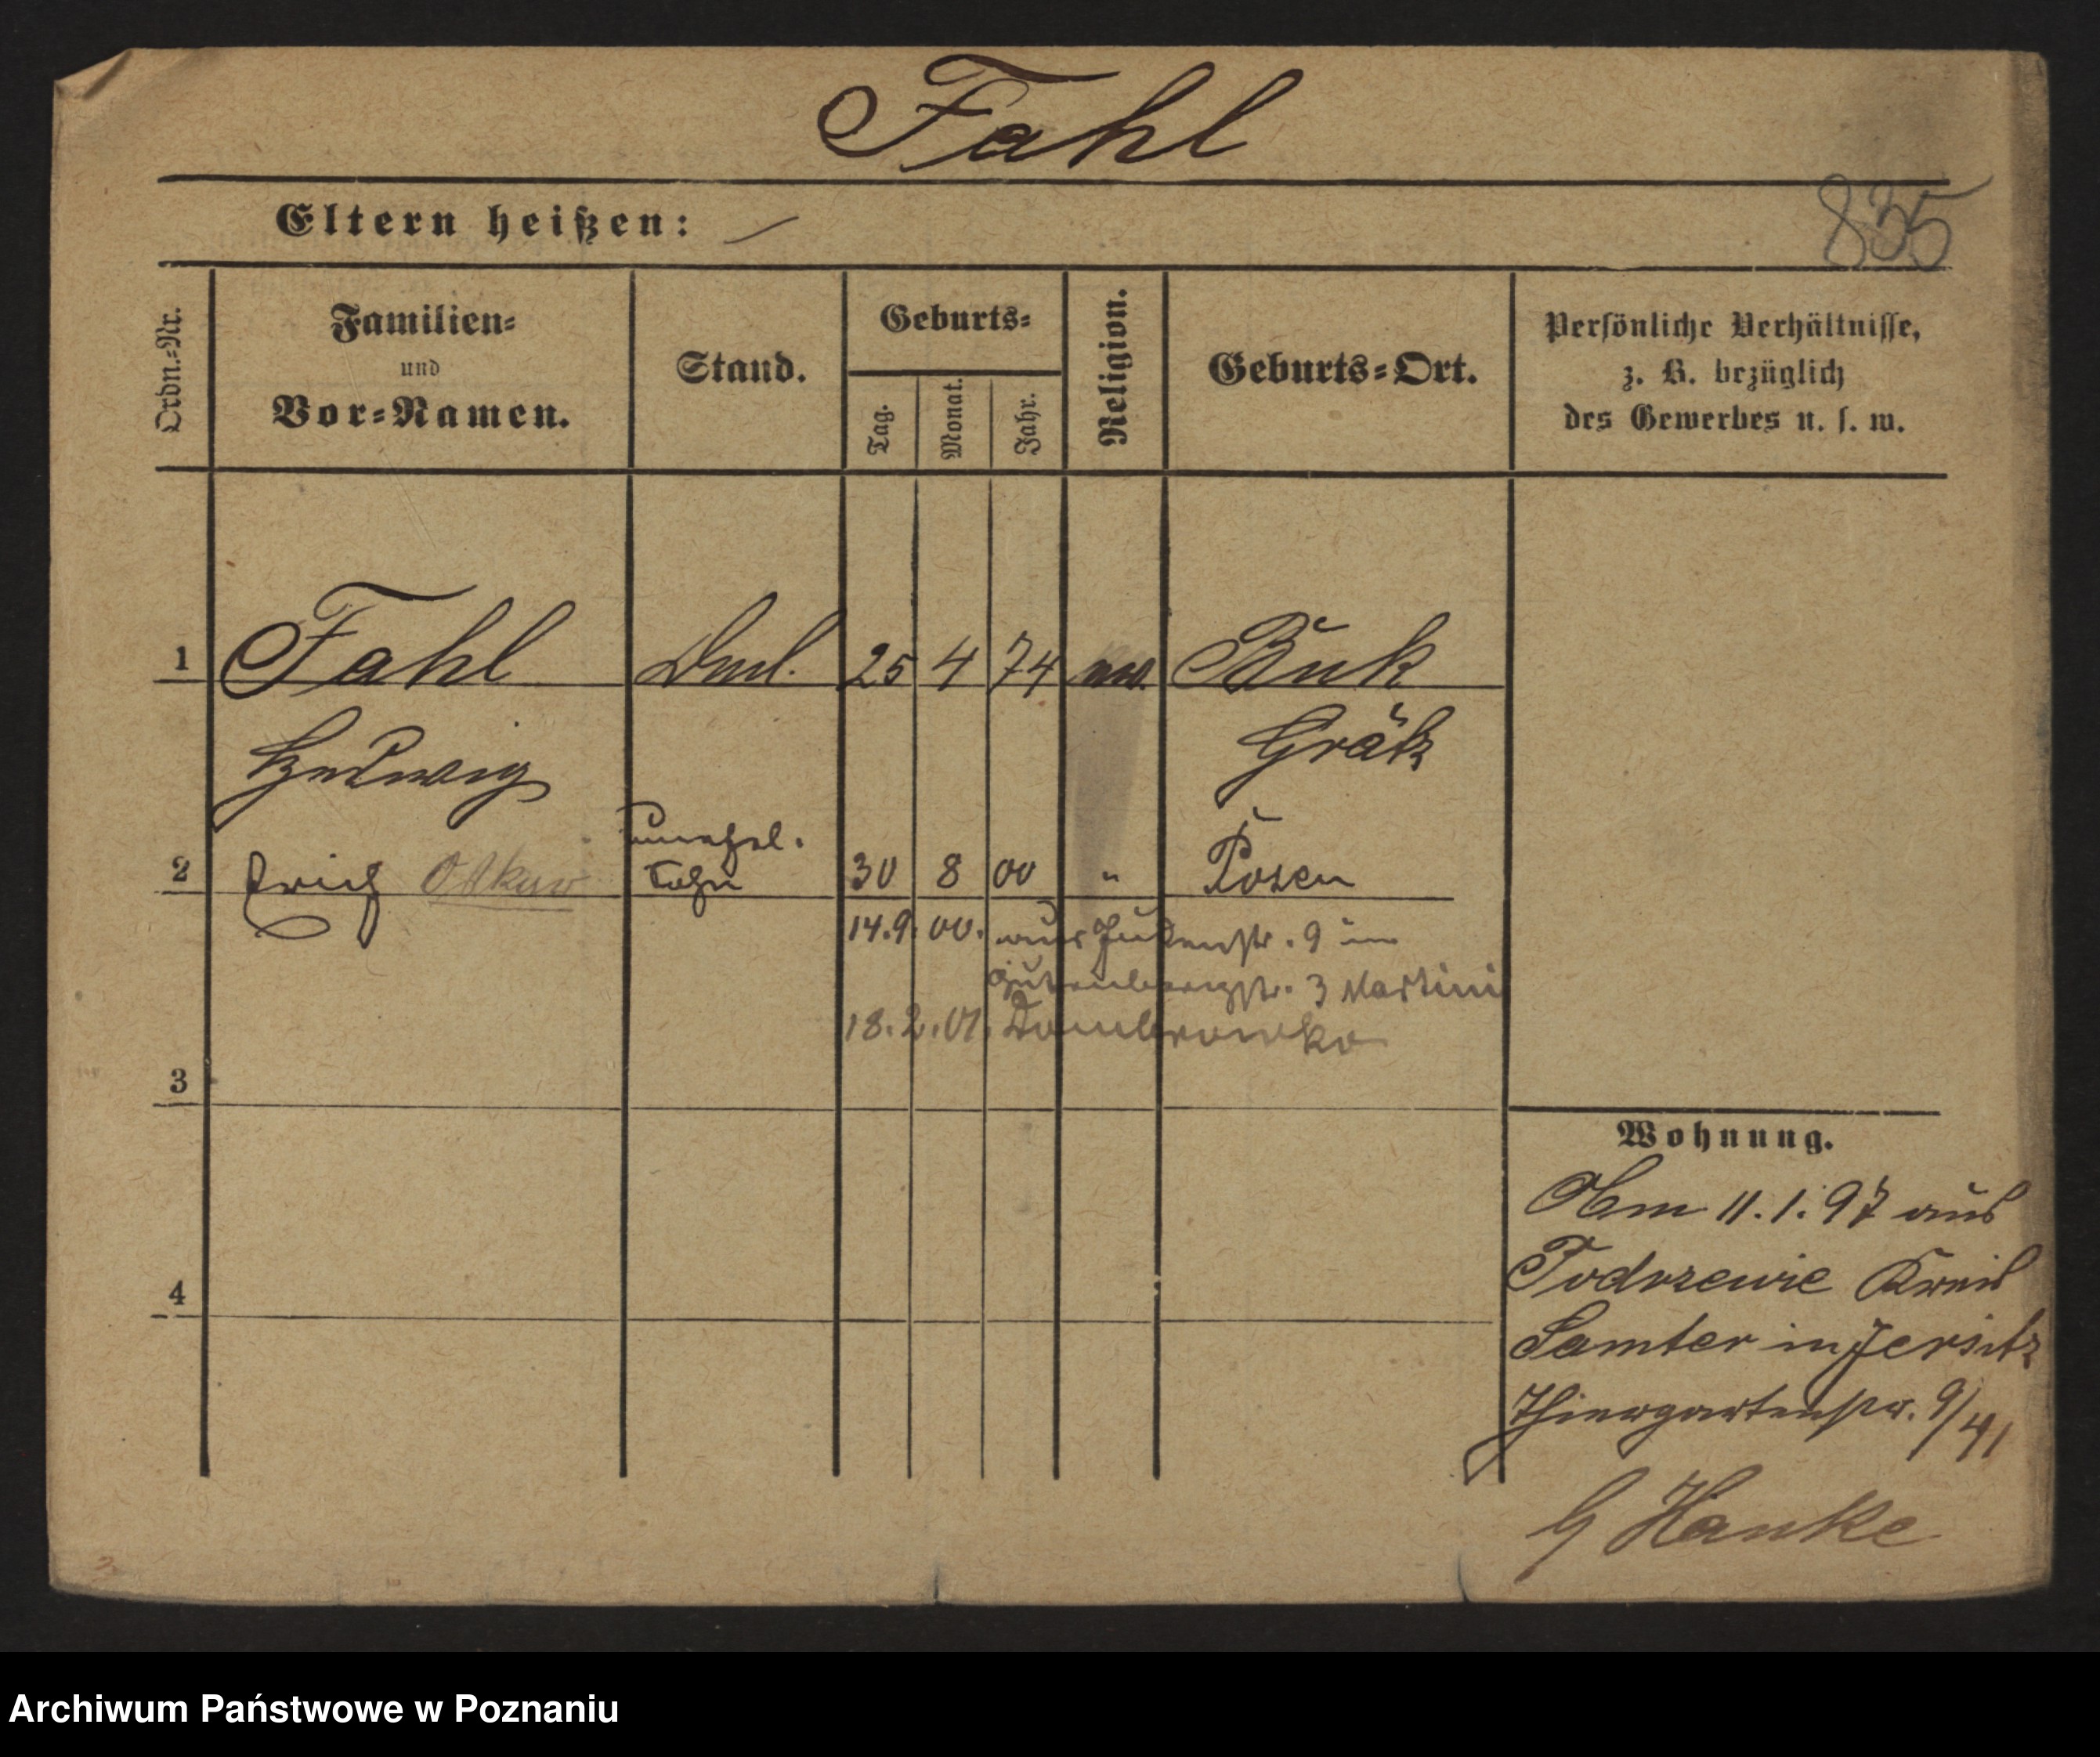 Fahl
835
Eltern heißen: —
Ordn.=Nr.
Familien=
und
Vor=Namen.
Stand.
Geburts=
Tag.
Monat.
Jahr.
Religion.
Geburts=Ort.
Persönliche Verhältnisse,
z. B. bezüglich
des Gewerbes u. s. w.
1 Fahl 25 4 74 Buk
Hedwig Grätz
unehel.
2 Erich Oskar Sohn 30 8 00 " Posen
14.9.00. aus Judenstr. 9 in
Gutenbergstr. 3 Martini
18.2.01. Dombrowko
3
4
Wohnung.
Am 11.1.97 aus
Podrzewie Kreis
Samter in Jersitz
Thiergartenstr. 9/41
G Hanke
Archiwum Państwowe w Poznaniu